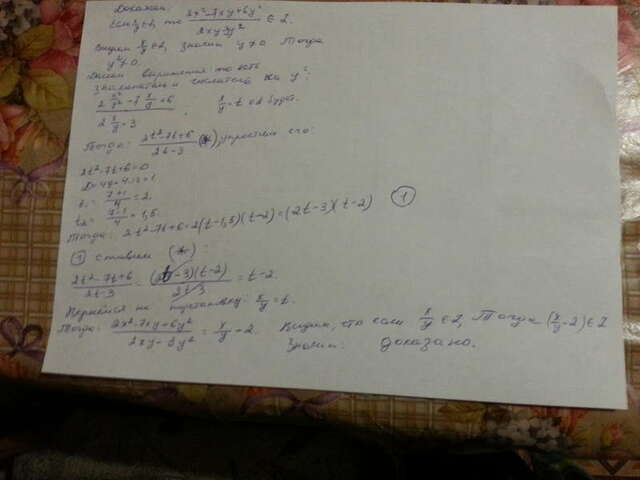 Докажем:
Если x/y ∈ Z, то (2x²-7xy+6y²)/(2xy-3y²) ∈ Z.
Видим x/y ∈ Z, значит y≠0. Тогда
y²≠0.
Делим выражения то есть
знаменатель и числитель на y²:
(2 x²/y² - 7 x/y + 6)/(2 x/y - 3) . x/y = t
Тогда: (2t²-7t+6)/(2t-3) (*), упростим его:
2t²-7t+6=0
D=49-4·12=1
t₁= (7+1)/4 = 2.
t₂= (7-1)/4 = 1,5.
Тогда: 2t²-7t+6=2(t-1,5)(t-2)=(2t-3)(t-2) ①
① ставим (*):
(2t²-7t+6)/(2t-3) = (2t-3)(t-2)/(2t-3) = t-2.
Вернёмся на подстановку: x/y = t.
Тогда: (2x²-7xy+6y²)/(2xy-3y²) = x/y - 2. Видим, что если x/y ∈ Z, Тогда (x/y - 2) ∈ Z
Значит: Доказано.